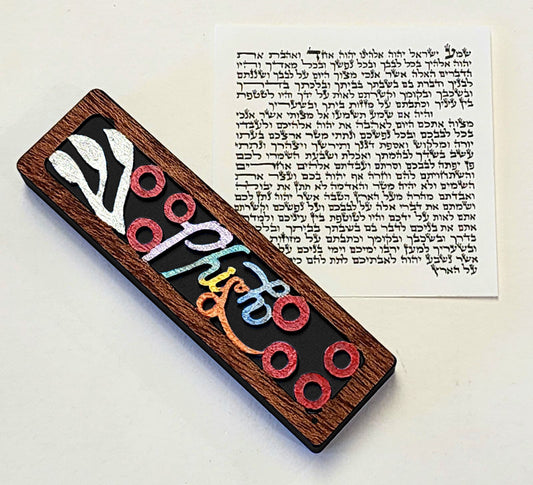 שמע ישראל יהוה אלהינו יהוה אחד ואהבת את
יהוה אלהיך בכל לבבך ובכל נפשך ובכל מאדך והיו
הדברים האלה אשר אנכי מצוך היום על לבבך ושננתם
לבניך ודברת בם בשבתך בביתך ובלכתך בדרך
ובשכבך ובקומך וקשרתם לאות על ידך והיו לטטפת
בין עיניך וכתבתם על מזזות ביתך ובשעריך
והיה אם שמע תשמעו אל מצותי אשר אנכי
מצוה אתכם היום לאהבה את יהוה אלהיכם ולעבדו
בכל לבבכם ובכל נפשכם ונתתי מטר ארצכם בעתו
יורה ומלקוש ואספת דגנך ותירשך ויצהרך ונתתי
עשב בשדך לבהמתך ואכלת ושבעת השמרו לכם
פן יפתה לבבכם וסרתם ועבדתם אלהים אחרים
והשתחויתם להם וחרה אף יהוה בכם ועצר את
השמים ולא יהיה מטר והאדמה לא תתן את יבולה
ואבדתם מהרה מעל הארץ הטבה אשר יהוה נתן לכם
ושמתם את דברי אלה על לבבכם ועל נפשכם וקשרתם
אתם לאות על ידכם והיו לטוטפת בין עיניכם
אתם את בניכם לדבר בם בשבתך בביתך
בדרך ובשכבך ובקומך וכתבתם על
ובשעריך למען ירבו ימיכם וימי בניכם על
אשר נשבע יהוה לאבתיכם לתת להם
על הארץ
ש
Phish